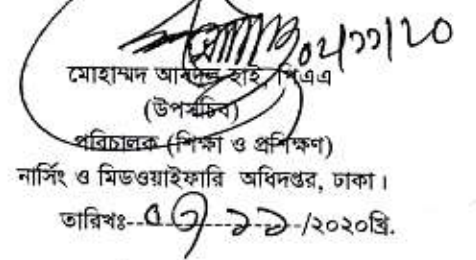 ০২/১১/২০
মোহাম্মদ আবদুল হাই, পিএএ
(উপসচিব)
পরিচালক (শিক্ষা ও প্রশিক্ষণ)
নার্সিং ও মিডওয়াইফারি অধিদপ্তর, ঢাকা।
তারিখঃ-- ১১ -/২০২০খ্রি.